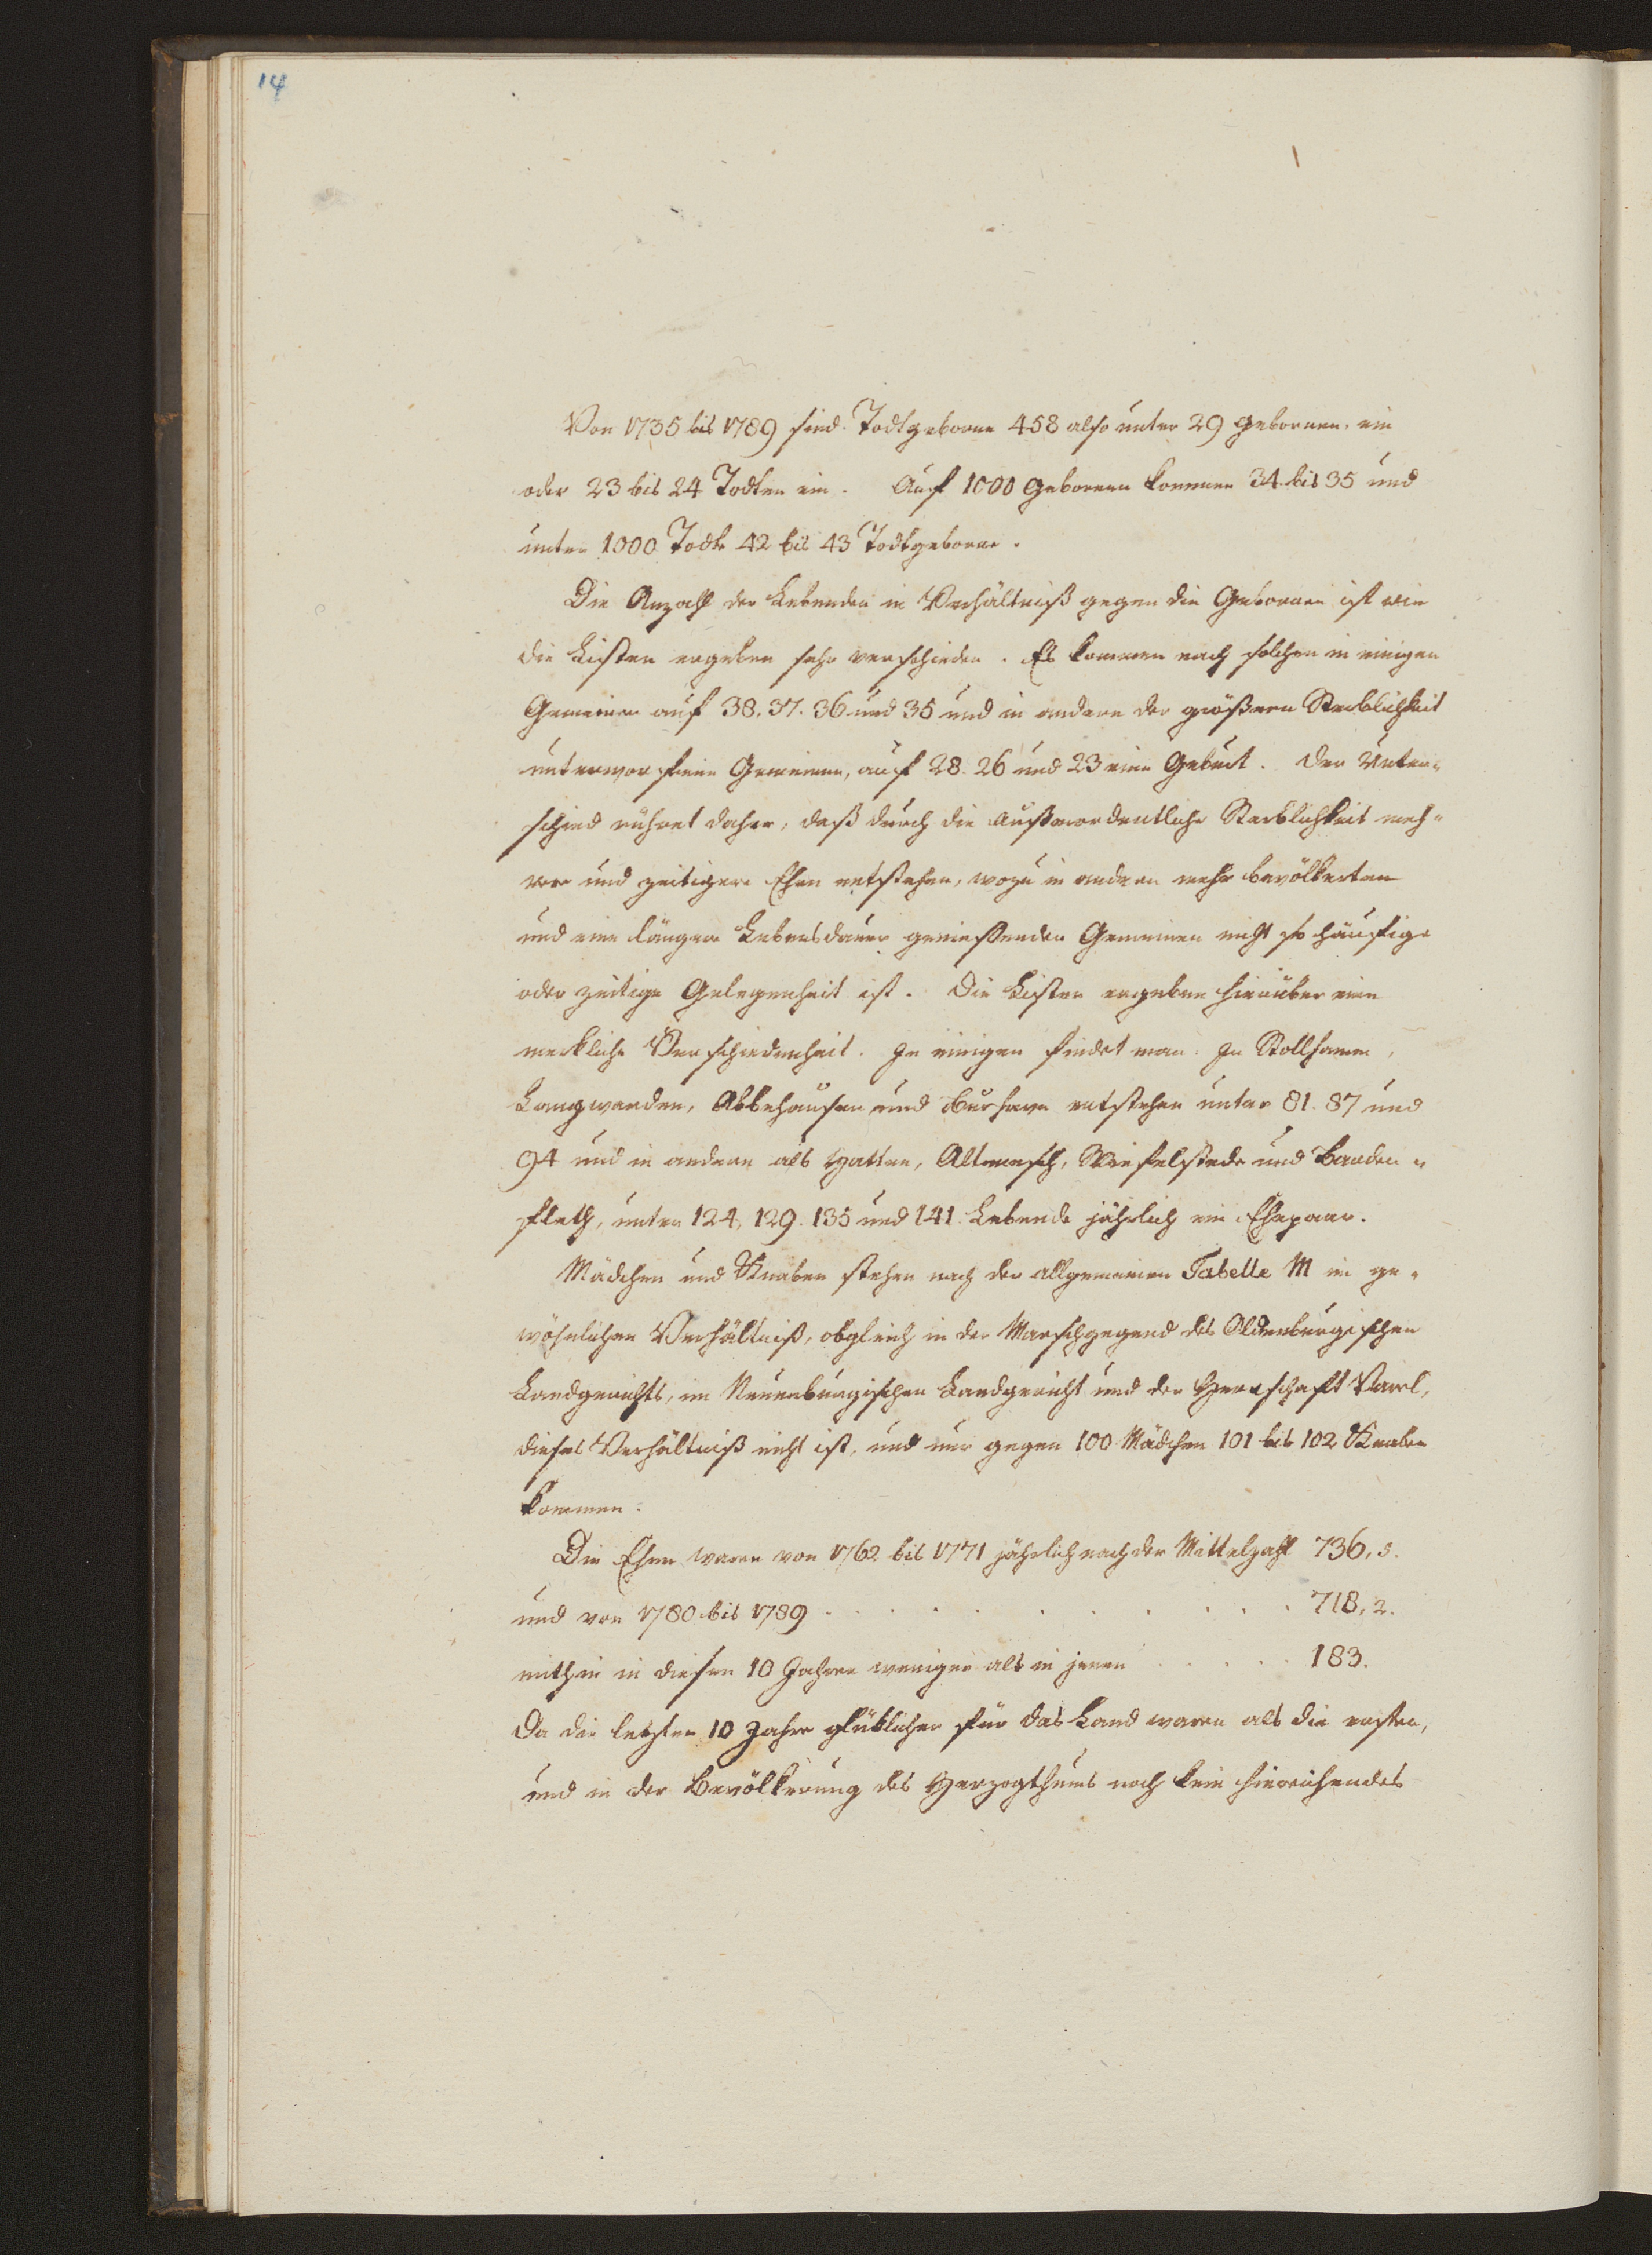 14
Von 1735 bis 1789 sind Todtgeborne 458 also unter 29 Gebornen, ein
oder 23 bis 24 Todten ein. Auf 1000 Geborenen kommen 34 bis 35 und
unter 1000 Todte 42 bis 43 Todtgeborne.
Die Anzahl der Lebenden in Verhältniß gegen die Gebornen ist wie
die Listen ergeben sehr verschieden. Es kommen nach solchen in einigen
Gemeinen auf 38. 37. 36 und 35 und in andern der größern Sterblichkeit
unterworfenen Gemeinen, auf 28. 26 und 23 eine Geburt. Der Unter-
schied rühret daher, daß durch die Außerordentliche Sterblichkeit meh-
rere und zeitigere Ehen entstehen, wozu in andren mehr bevölkerten
und eine längere Lebensdauer genießenden Gemeinen nicht so häufige
oder zeitige Gelegenheit ist. Die Listen ergeben hierüber eine
merkliche Verschiedenheit. In einigen findet man. In Stollhamm,
Langwarden, Abbehausen und Burhave entstehen unter 81. 87 und
94 und in andern als Hatten, Altenesch, Wiefelstede und Barden-
fleth, unter 124, 129. 135 und 141. Lebende jährlich ein Ehepaar.
Mädchen und Knaben stehen nach der allgemeinen Tabelle M im ge-
wöhnlichen Verhältniß, obgleich in der Marschgegend des Oldenburgischen
Landgerichts, im Neuenburgischen Landgericht und der Herrschaft Varel,
dieses Verhältniß nicht ist, und nur gegen 100 Mädchen 101 bis 102 Knaben
kommen.
Die Ehen waren von 1762 bis 1771 jährlich nach der Mittelzahl 736, 5.
und von 1780 bis 1789 . . . . . . . . . . 718, 2.
mithin in diesen 10 Jahren weniger als in jenen . . . . . 183.
Da die letzten 10 Jahre glüklicher für das Land waren als die ersten,
und in der Bevölkerung des Herzogthums noch kein hinreichendes